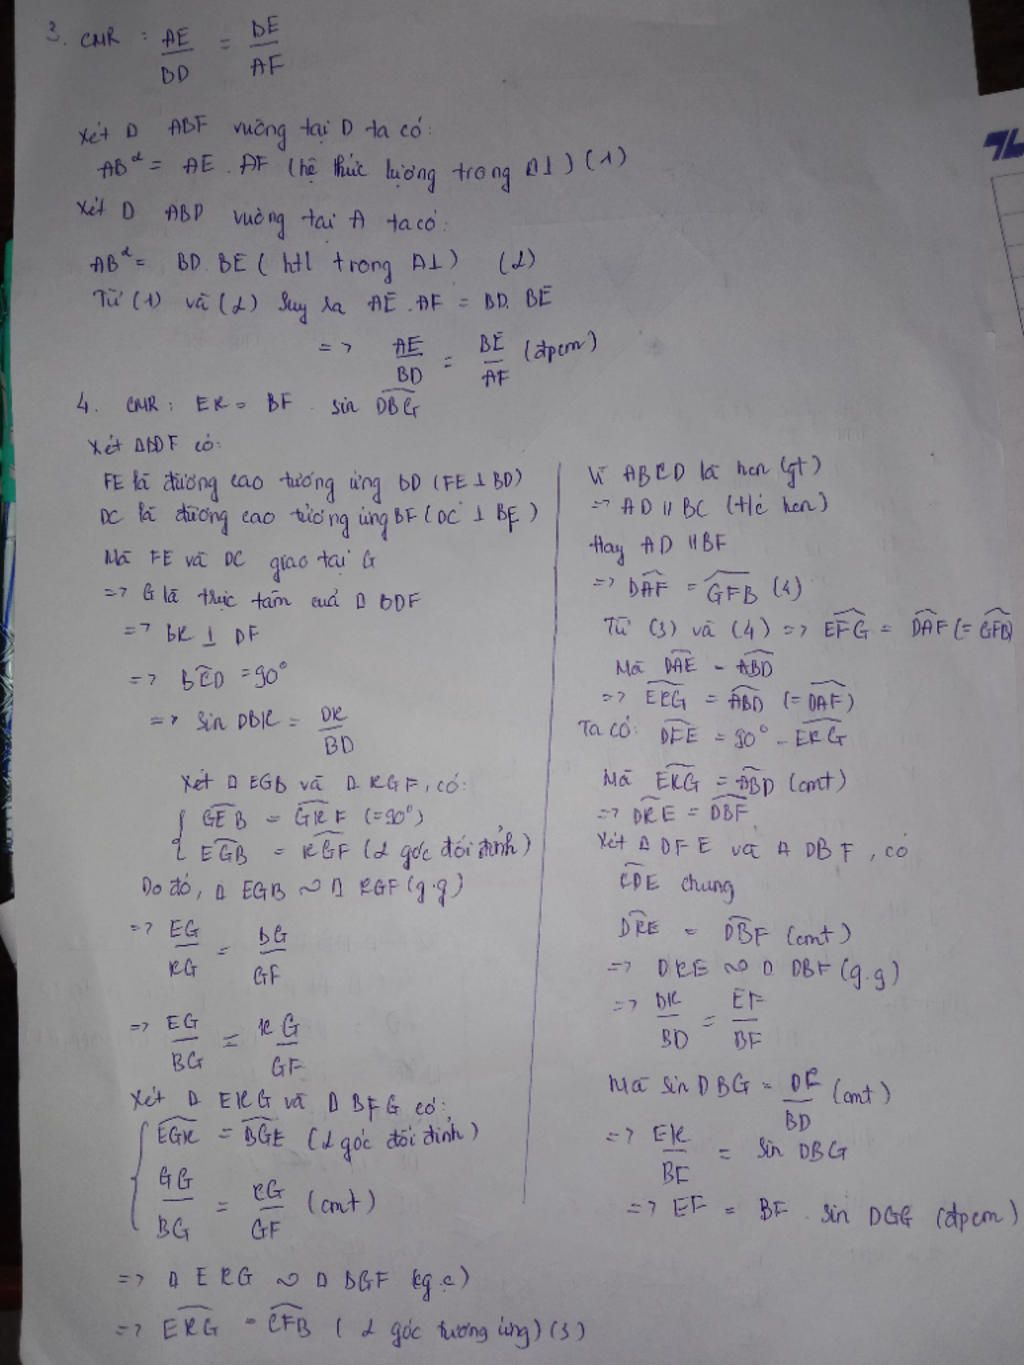 3. CMR : AE/BD = BE/AF
Xét Δ ABF vuông tại D ta có:
AB² = AE . AF (hệ thức lượng trong Δ⊥) (1)
Xét Δ ABD vuông tại A ta có:
AB² = BD. BE ( htl trong Δ⊥) (2)
Từ (1) và (2) suy ra AE . AF = BD. BE
=> AE/BD = BE/AF (đpcm)
4. CMR : EK = BF . sin DBG
Xét ΔBDF có:
FE là đường cao tương ứng BD (FE ⊥ BD)
DC là đường cao tương ứng BF (DC ⊥ BF)
Mà FE và DC giao tại G
=> G là trực tâm cuả Δ BDF
=> BK ⊥ DF
=> BKD = 90°
=> sin DBK = DK/BD
Xét Δ EGB và Δ KGF, có:
GEB = GKF (=90°)
EGB = KGF (2 góc đối đỉnh)
Do đó, Δ EGB ∽ Δ KGF (g.g)
=> EG/KG = BG/GF
=> EG/BG = KG/GF
Xét Δ EKG và Δ BFG có:
EGK = BGE (2 góc đối đỉnh)
GG/BG = KG/GF (cmt)
=> Δ EKG ∽ Δ BGF (cg.c)
=> EKG = CFB ( 2 góc tương ứng) (3)
Vì ABCD là hcn (gt)
=> AD // BC (t/c hcn)
Hay AD // BF
=> DAF = GFB (4)
Từ (3) và (4) => EFG = DAF (= GFB)
Mà DAE = ABD
=> EKG = ABD (= DAF)
Ta có: DFE = 90° - EKG
Mà EKG = ABD (cmt)
=> DKE = DBF
Xét Δ DFE và Δ DBF, có
CDE chung
DKE = DBF (cmt)
=> DKE ∽ Δ DBF (g.g)
=> DK/BD = EF/BF
Mà sin DBG = DK/BD (cmt)
=> EK/BF = sin DBG
=> EF = BF . sin DGG (đpcm)